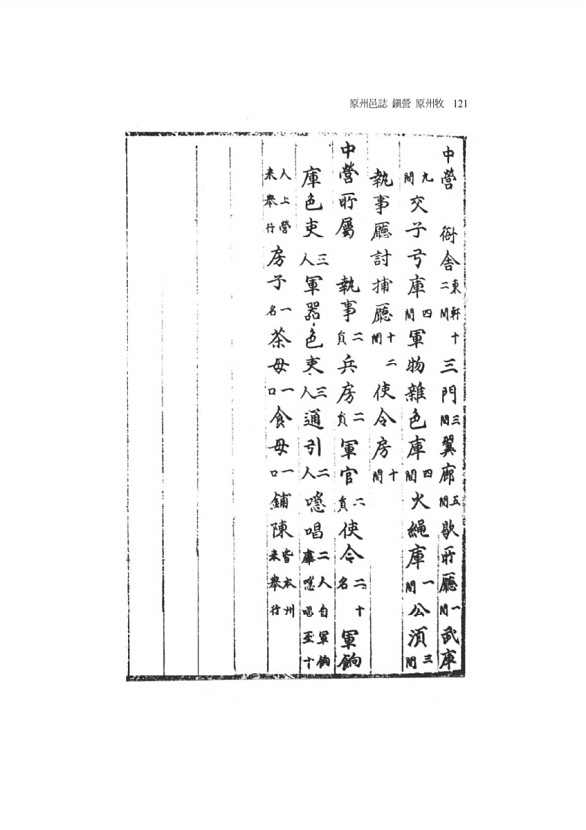 原州邑誌 鎭營 原州牧 121
中營 衙舍東軒十二間三門三間翼廊五間歇所廳一間武庫
九間交子弓庫四間軍物雜色庫四間火繩庫一間公須三間
執事廳討捕廳十二間使令房十間
中營所屬 執事二員兵房二員軍官二員使令二十名 軍餉
庫色吏三人軍器色吏三人通引二人唱二人自軍餉庫唱至十
人上營來擧行房子一名茶母一口食母一口鋪陳皆本州來擧行